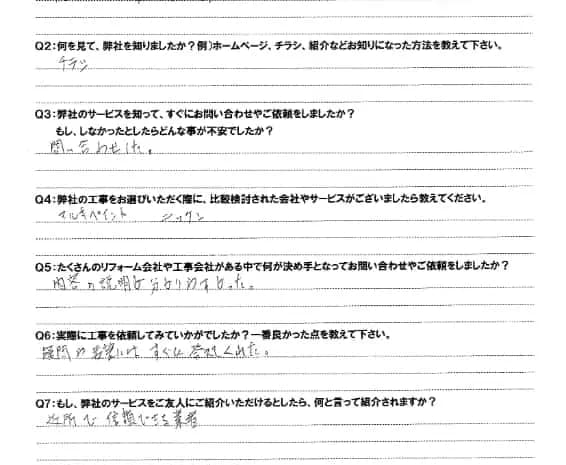 Q2:何を見て、弊社を知りましたか？例)ホームページ、チラシ、紹介などお知りになった方法を教えて下さい。
チラシ
Q3:弊社のサービスを知って、すぐにお問い合わせやご依頼をしましたか？
もし、しなかったとしたらどんな事が不安でしたか？
問い合わせした。
Q4:弊社の工事をお選びいただく際に、比較検討された会社やサービスがございましたら教えてください。
マルキペイント ニッケン
Q5:たくさんのリフォーム会社や工事会社がある中で何が決め手となってお問い合わせやご依頼をしましたか？
内容の説明が分かりやすかった。
Q6:実際に工事を依頼してみていかがでしたか？一番良かった点を教えて下さい。
疑問の にはすぐに答えてくれた。
Q7:もし、弊社のサービスをご友人にご紹介いただけるとしたら、何と言って紹介されますか？
近所で信頼できる業者